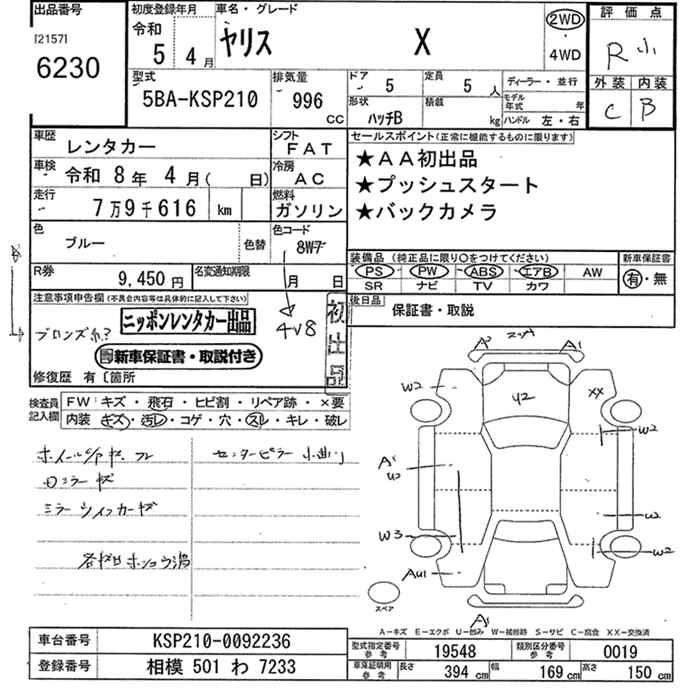 出品番号
[2157]
6230
初度登録年月
令和
5年 4月
車名・グレード
ヤリス X
2WD
4WD
評価点
R小
外装 内装
C B
型式
5BA-KSP210
排気量
996
CC
ドア 5
形状 ハッチB
定員 5人
積載 kg
ディーラー・並行
モデル年式 年
ハンドル 左・右
車歴 レンタカー
車検 令和 8年 4月( 日)
走行 7万9千616 km
シフト FAT
冷房 AC
燃料 ガソリン
セールスポイント(正常に機能するものに限ります)
★AA初出品
★プッシュスタート
★バックカメラ
色 ブルー 色替
色コード 8W7
4V8
装備品(純正品に限り〇をつけてください)
PS PW ABS エアB AW
SR ナビ TV カワ
新車保証書
有・無
R券 9,450円
名変通知期限 月 日
後日品 保証書・取説
注意事項申告欄(不具合内容等は具体的に記入して下さい)
ニッポンレンタカー出品
新車保証書・取説付き
ブロンズ系?
初出品
修復歴 有〔箇所
検査員記入欄
FW キズ・飛石・ヒビ割・リペア跡・×要
内装 キズ・汚レ・コゲ・穴・スレ・キレ・破レ
ミラーシイフカーキズ
A2 A1
W2 XX
Y2
W2
A1
U2
U2
W3
W2
AU1
A1
スペア
A-キズ E-エクボ U-凹み W-補修跡 S-サビ C-腐食 XX-交換済
車台番号 KSP210-0092236
登録番号 相模 501 わ 7233
型式指定番号 参考 19548
類別区分番号 参考 0019
車庫証明用 参考 長さ 394 cm 幅 169 cm 高さ 150 cm